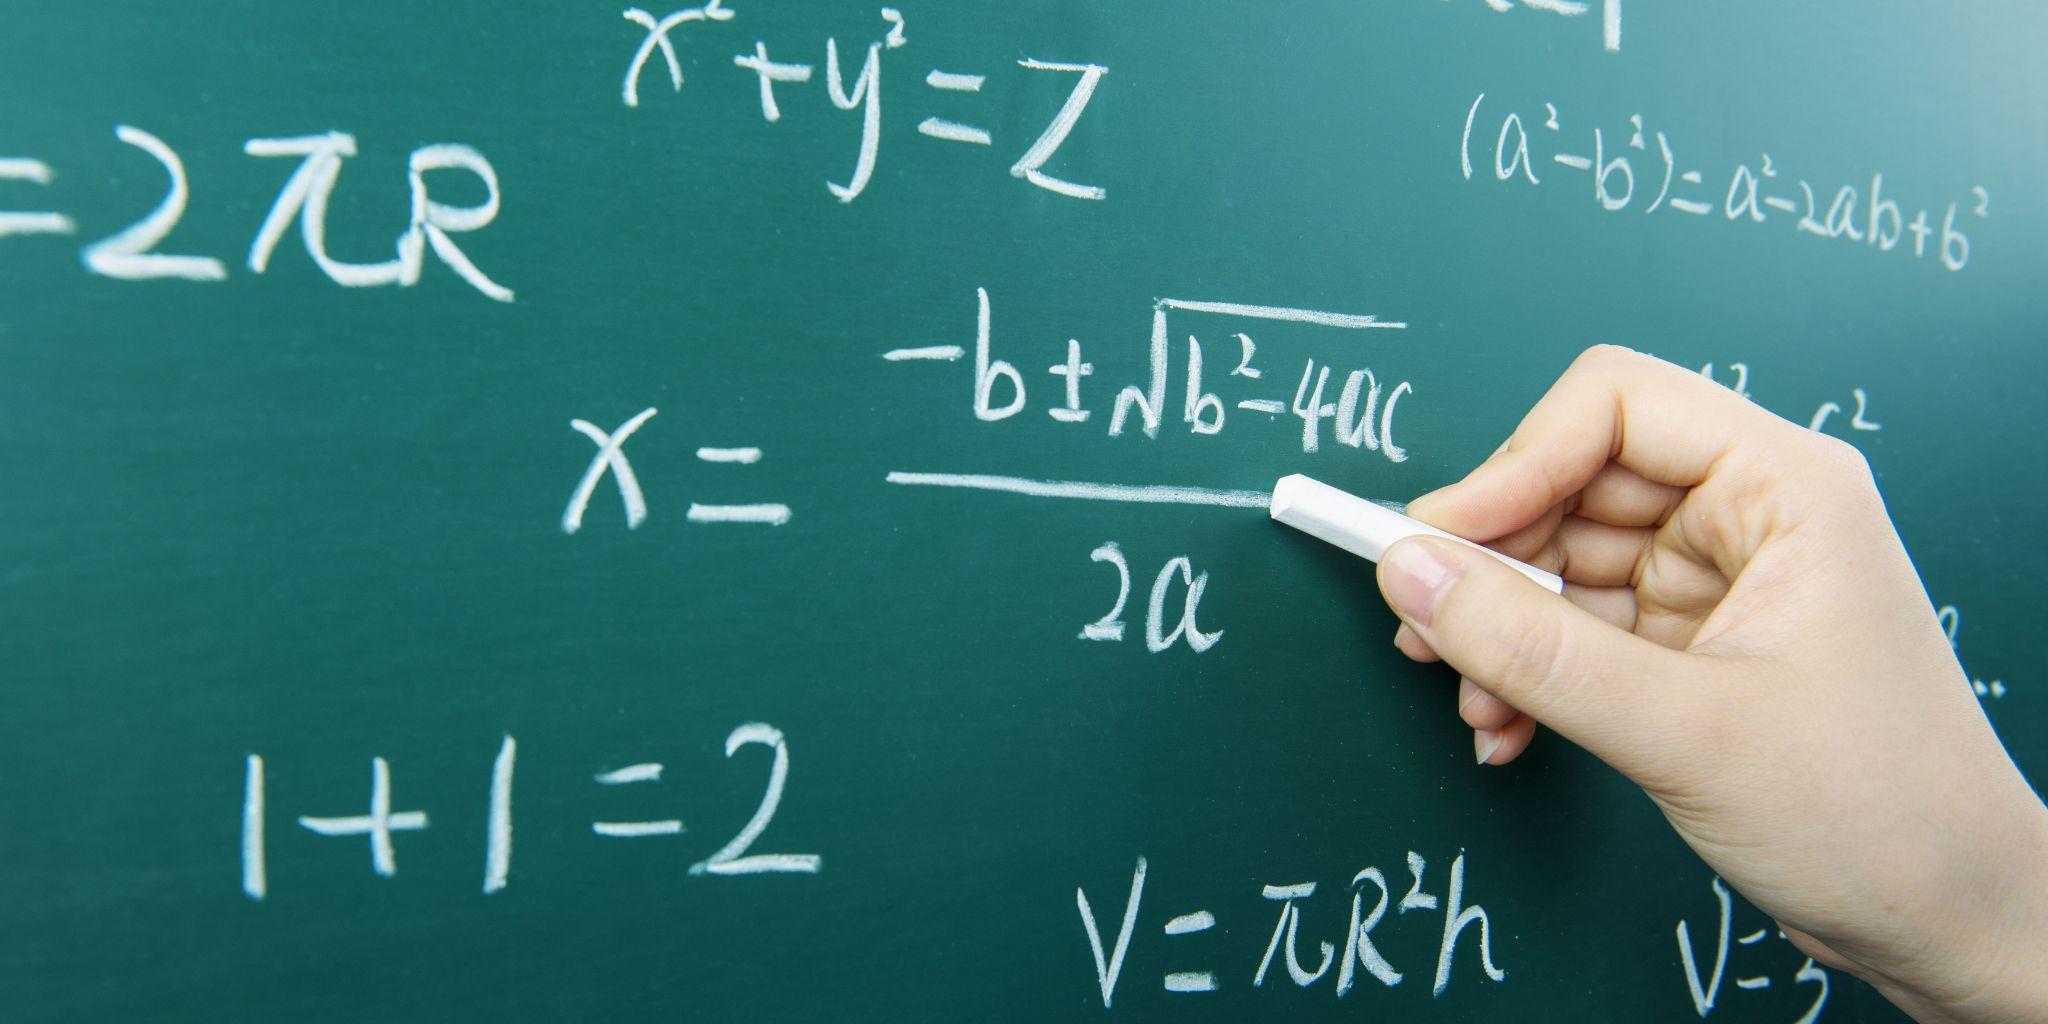 x²+y²=Z
=2πR
(a²-b²)=a²-2ab+b²
x = -b±√b²-4ac
2a
1+1=2
V=πR²h